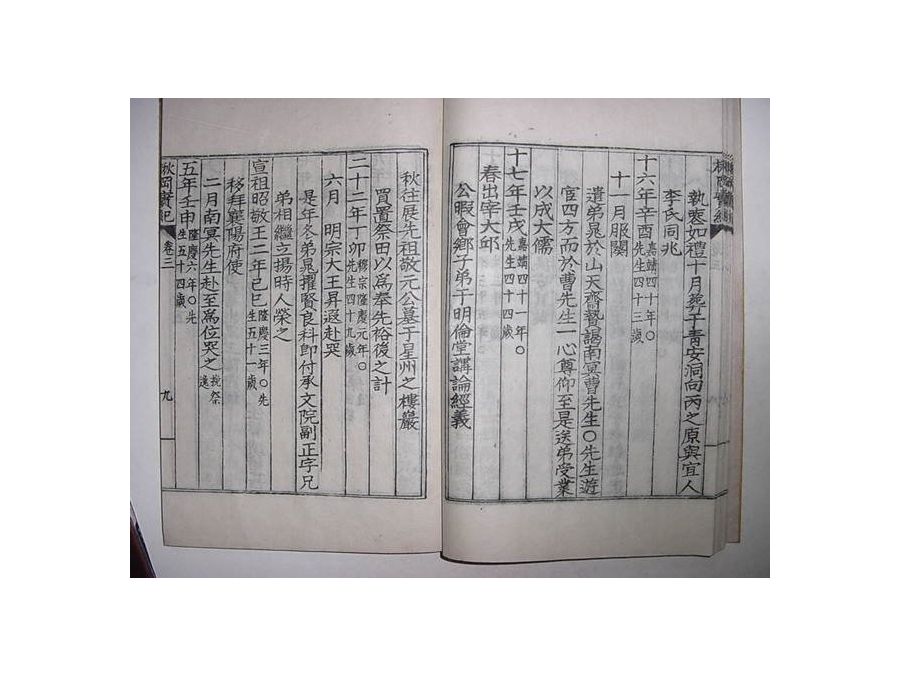 執喪如禮十月葬于靑安洞向丙之原與宜人
李氏同兆
十六年辛酉嘉靖四十年○先生四十三歲
十一月服闋
遣弟晁於山天齋贄謁南冥曹先生○先生遊
官四方而於曹先生一心尊仰至是送弟受業
以成大儒
十七年壬戌嘉靖四十一年○先生四十四歲
春出宰大邱
公暇會鄕子弟于明倫堂講論經義
秋往展先祖敬元公墓于星州之樓巖
買置祭田以爲奉先裕後之計
二十二年丁卯穆宗隆慶元年○先生四十九歲
六月 明宗大王昇遐赴哭
是年冬弟晁擢賢良科卽付承文院副正字兄
弟相繼立揚時人榮之
宣祖昭敬王二年己巳隆慶三年○先生五十一歲
移拜襄陽府使
二月南冥先生赴至爲位哭之
五年壬申隆慶六年○先生五十四歲
秋岡實記 卷二 九